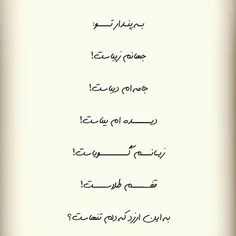 به پندار تو:
جهانم زیباست!
جامه ام دیباست!
دیده ام بیناست!
زبانم گویاست!
قفسم طلاست!
به این ارزد که دلم تنهاست؟